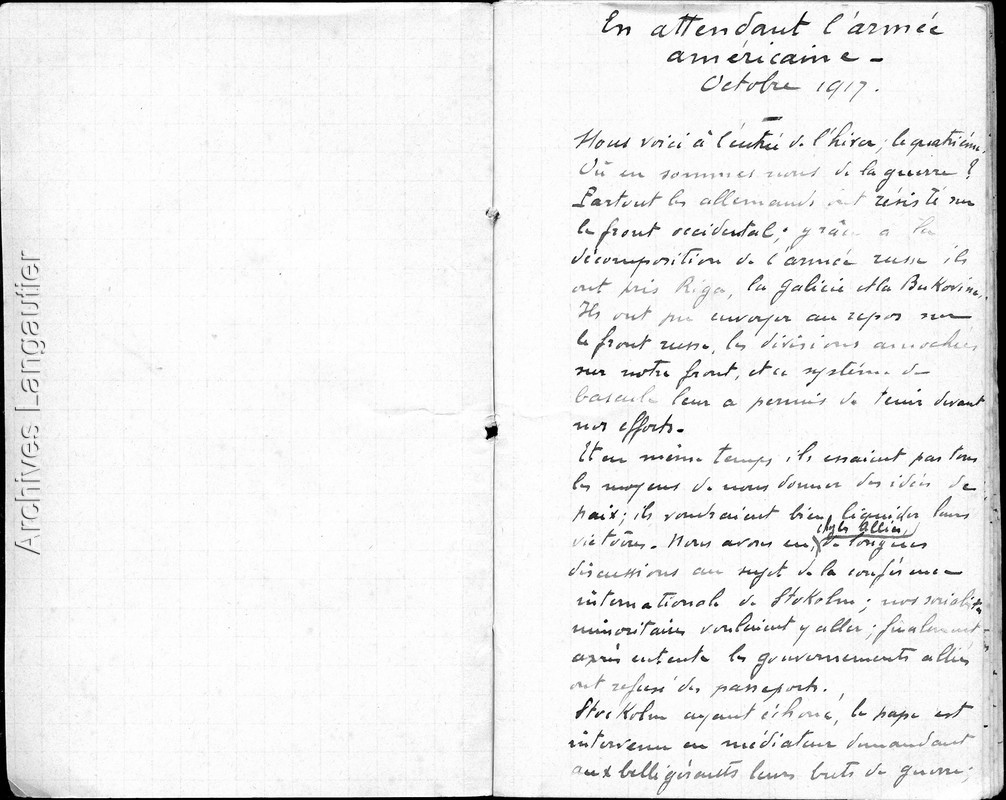 En attendant l'armée
américaine -
Octobre 1917.
Nous voici à l'entrée de l'hiver; le quatrième.
Où en sommes nous de la guerre ?
Partout les allemands ont résisté sur
le front occidental; grâce à la
décomposition de l'armée russe ils
ont pris Riga, la Galicie et la Bukovine.
Ils ont pu envoyer au repos sur
le front russe, les divisions amochées
sur notre front, et ce système de
bascule leur a permis de tenir devant
nos efforts.
Et en même temps ils essaient par tous
les moyens de nous donner des idées de
paix; ils voudraient bien liquider leurs
les Alliés,
victoires. Nous avons eu, de longues
discussions au sujet de la conférence
internationale de Stokolm; nos socialistes
minoritaires voulaient y aller; finalement
après entente les gouvernements alliés
ont refusé des passeports.
Stockolm ayant échoué, le pape est
intervenu en médiateur demandant
aux belligérants leurs buts de guerre;
Archives Langautier